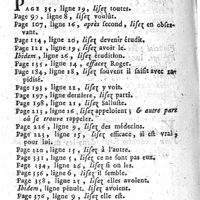 PAGE 35, ligne 19, liſez toutes.
Page 97, ligne 8, liſez voulut.
Page 107, ligne 16, après ſecond, liſez en obser-
vant.
Page 114, ligne 20, liſez devenir érudit.
Page 122, ligne 19, liſez avoir le.
Ibidem, ligne 26, liſez érudition.
Page 155, ligne 14, effacez Roger.
Page 184, ligne 18, liſez ſouvent il ſaiſit avec ra-
pidité.
Page 193, ligne 22, liſez y voit.
Page 197, ligne derniere, liſez parti.
Page 198, ligne 21, liſez Saluſte.
Page 215, ligne 16, liſez appelloient; & autre part
où ſe trouve rappeler.
Page 216, ligne 9, liſez des médecins.
Page 223, ligne 15, liſez efficace, il eſt vrai,
pour lui.
Page 320, ligne 15, liſez à l'autre.
Page 331, ligne 5, liſez ce ne ſont pas eux.
Page 334, ligne 26, liſez ſi on les.
Page 336, ligne 6, liſez il ſemble.
Page 358, ligne 25, liſez elles avoient.
Ibidem, ligne pénult. liſez avoient.
Page 376, ligne 9, liſez elle eſt.